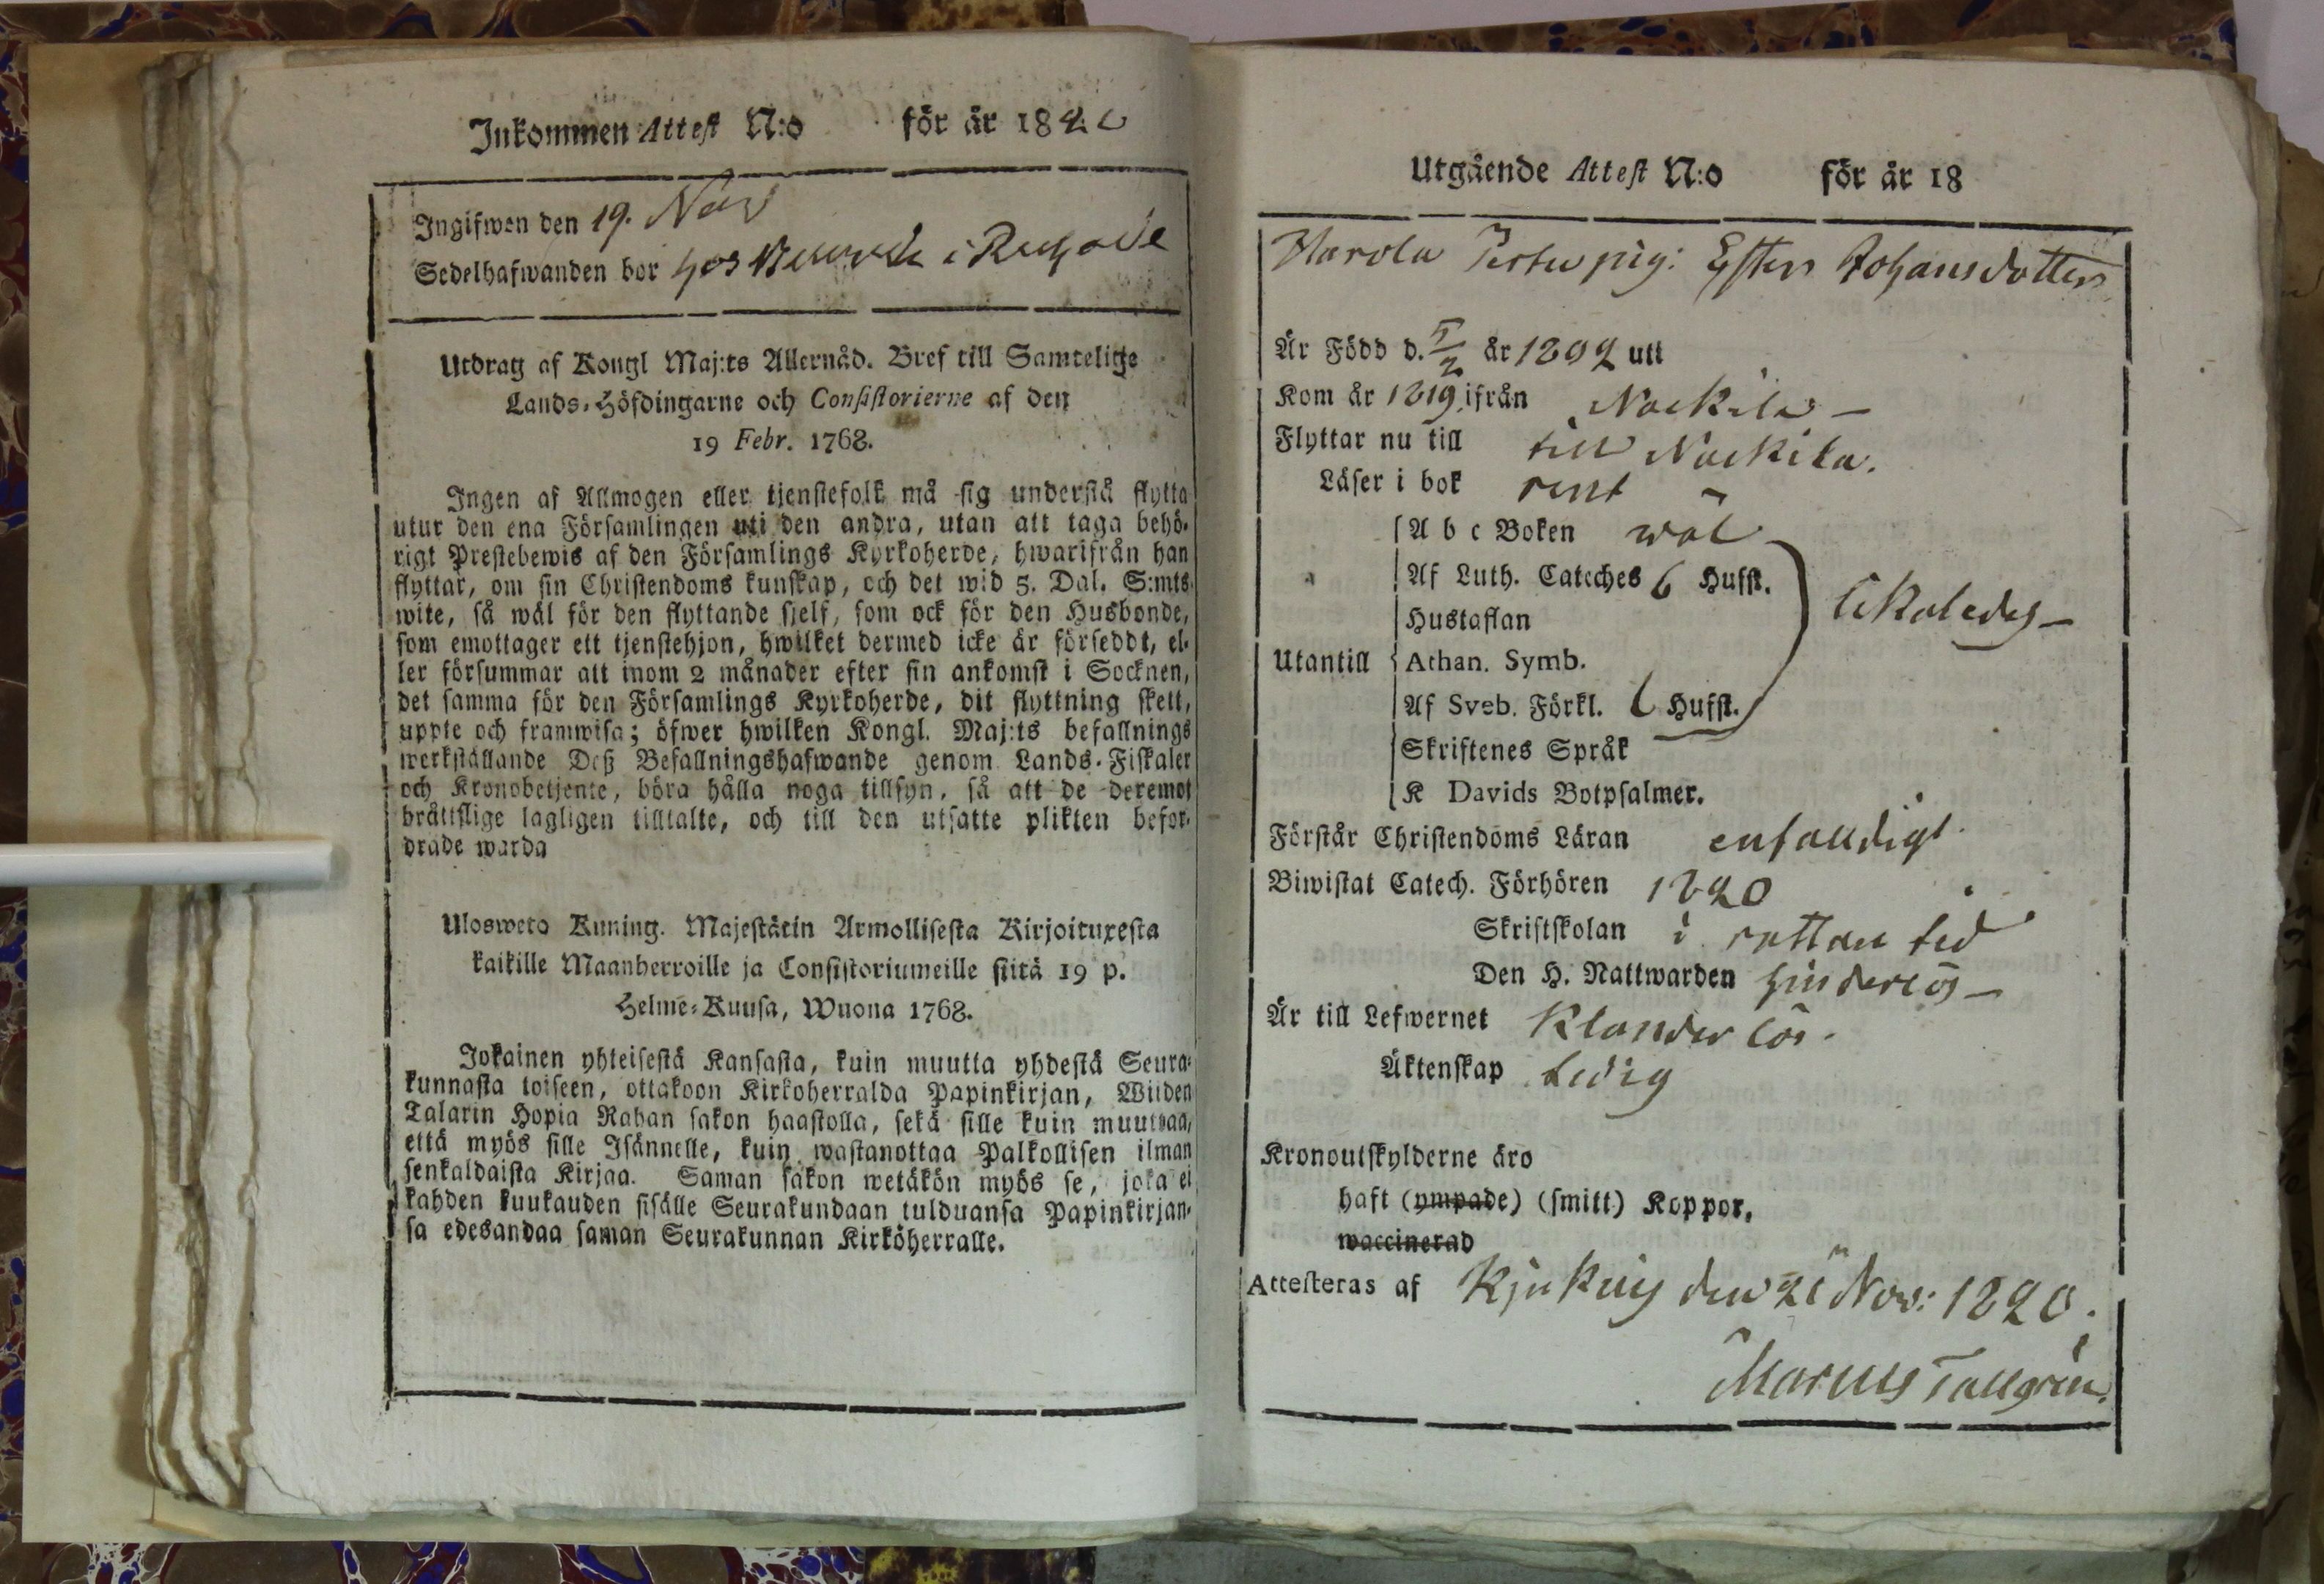 Inkommen Attest N:o för år 1820
Ingifwen den 19. Nov
Sedelhafwanden bor hos i
Utdrag af Kongl Maj:ts Allernåd. Bref till Samtelige
Lands-Höfdingarne och Consistorierne af den
19 Febr. 1768.
Ingen af Allmogen eller tjenstefolk må sig understå flytta
utur den ena Församlingen uti den andra, utan att taga behö-
rigt Prestebewis af den Församlings Kyrkoherde, hwarifrån han
flyttar, om sin Christendoms kunskap, och det wid 5. Dal. S:mts
wite, så wäl för den flyttande sjelf, som ock för den Husbonde,
som emottager ett tjenstehjon, hwilket dermed icke är förseddt, el-
ler försummar att inom 2 månader efter sin ankomst i Socknen,
det samma för den Församlings Kyrkoherde, dit flyttning skett,
uppte och framwisa; öfwer hwilken Kongl. Maj:ts befallnings
werkställande Deß Befallningshafwande genom Lands-Fiskaler
och Kronobetjente, böra hålla noga tillsyn, så att de deremot
bråttslige lagligen tilltalte, och till den utsatte plikten befor-
drade warda
Ulosweto Kuning. Majestätin Armollisesta Kirjoituxesta
kaikille Maanherroille ja Consistoriumeille siitä 19 p.
Helme-Kuusa, Wuona 1768.
Jokainen yhteisestä Kansasta, kuin muutta yhdestä Seura-
kunnasta toiseen, ottakoon Kirkoherralda Papinkirjan, Wiiden
Talarin Hopia Rahan sakon haastolla, sekä sille kuin muuttaa,
että myös sille Isännelle, kuin wastanottaa Palkollisen ilman
senkaldaista Kirjaa. Saman sakon wetäkön myös se, joka ei
kahden kuukauden sisälle Seurakundaan tulduansa Papinkirjan-
sa edesandaa saman Seurakunnan Kirköherralle.
Utgående Attest N:o för år 18
Harola pig: Ester Johansdotter
Är Född d. 5/2 år 1802 utt
Kom år 1819 ifrån Nackila –
Flyttar nu till till Nackila.
Läser i bok rent
A b c Boken wäl
Af Luth. Cateches 6 Hufst.
Hustaflan likaledes –
Utantill Athan. Symb.
Af Sveb. Förkl. 6 Hufst.
Skriftenes Språk
K Davids Botpsalmer.
Förstår Christendoms Läran enfalldigt
Biwistat Catech. Förhören 1820
Skriftskolan i rättan tid
Den H. Nattwarden hinderlös –
Är till Lefwernet Klanderlös.
Äktenskap ledig
Kronoutskylderne äro
haft (ympade) (smitt) Koppor,
waccinerad
Attesteras af Kjukais den 21 Nov: 1820.
Marcus Tallgren.